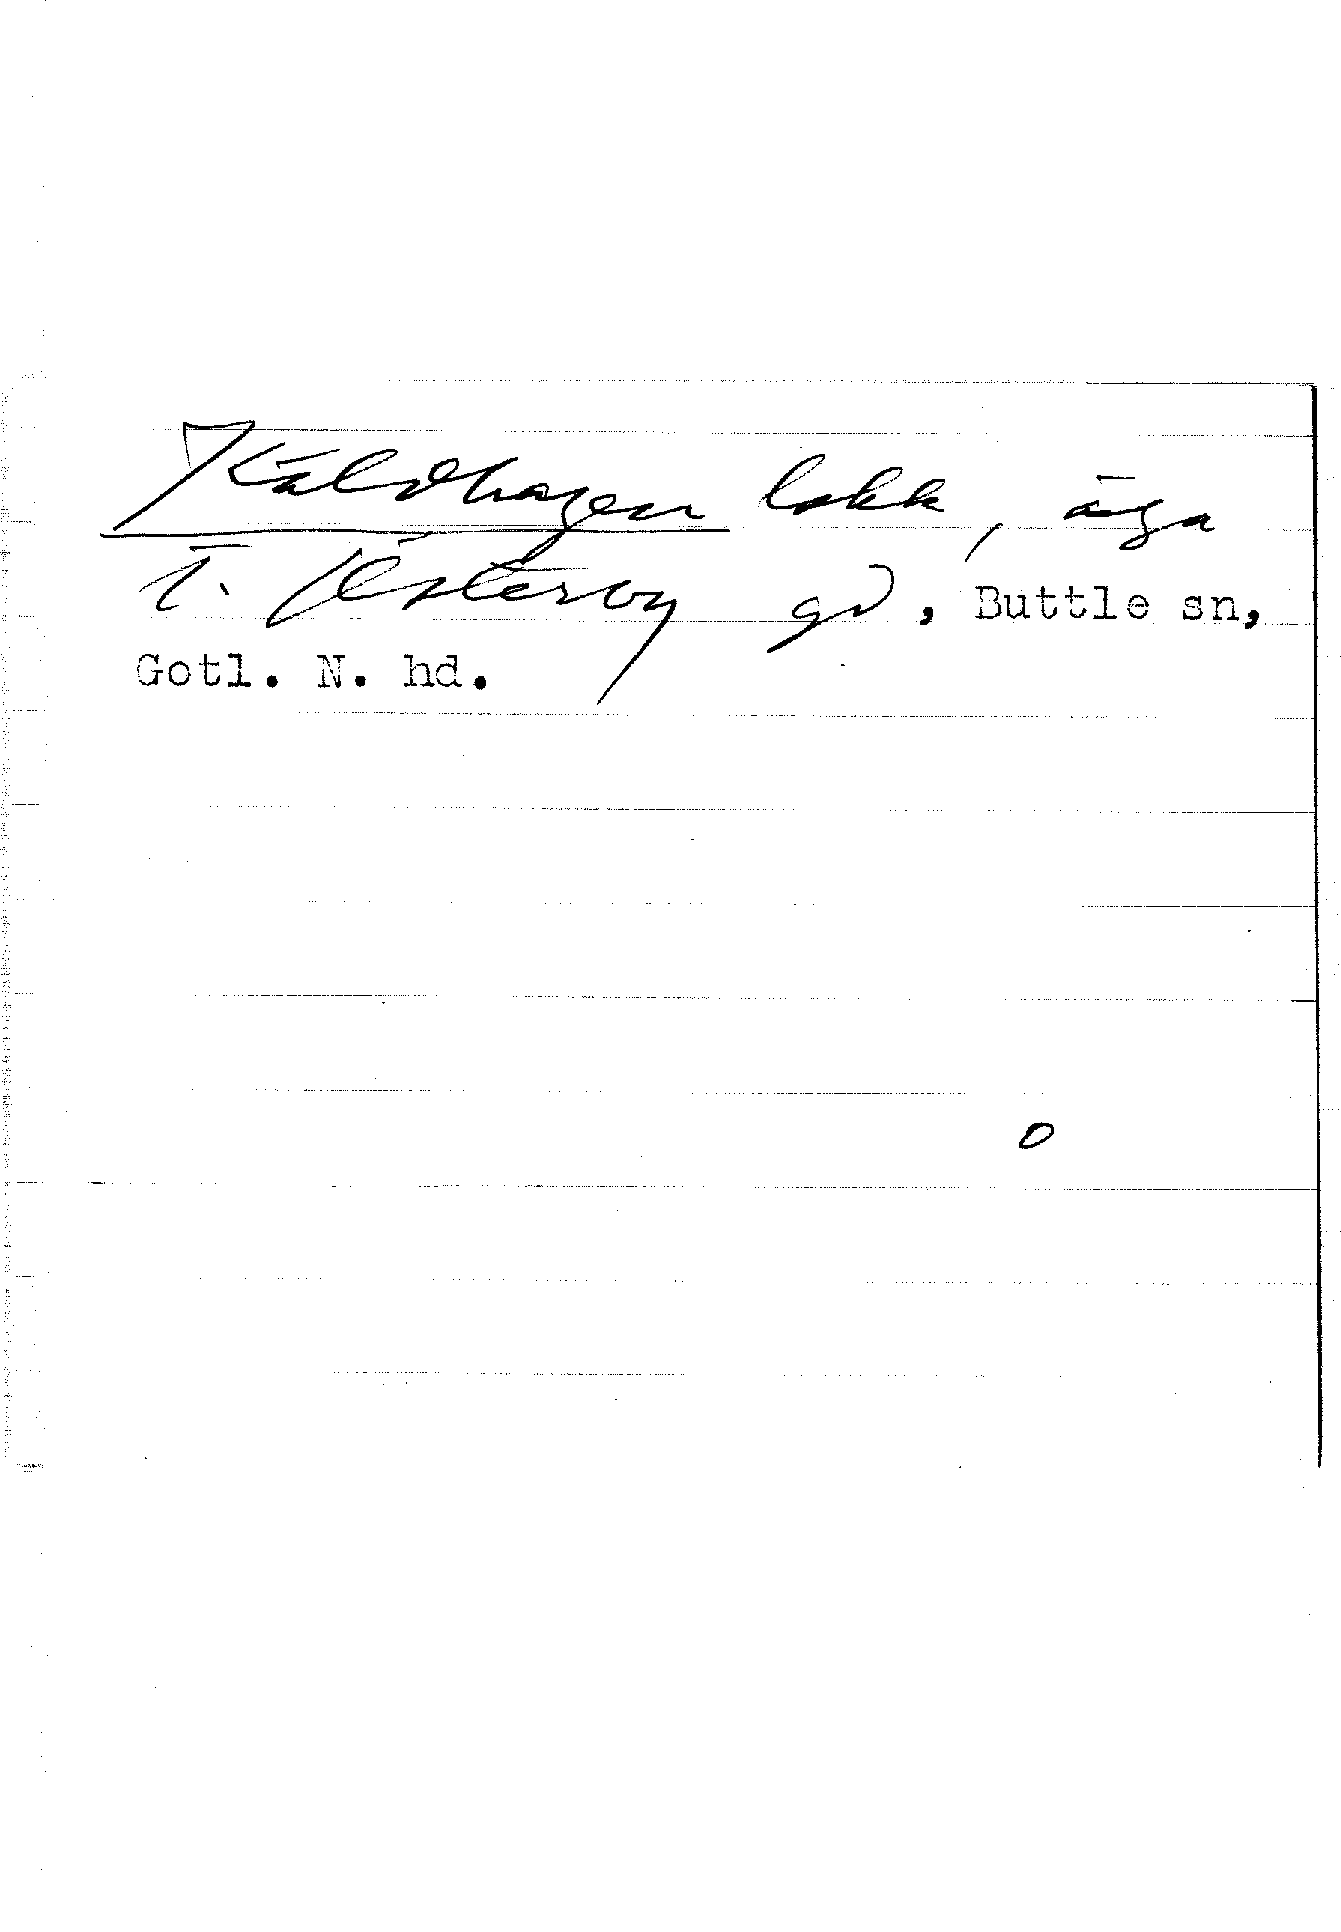 Käldhagen lokk, äga
t. Österby gd, Buttle sn,
Gotl. N. hd.
0